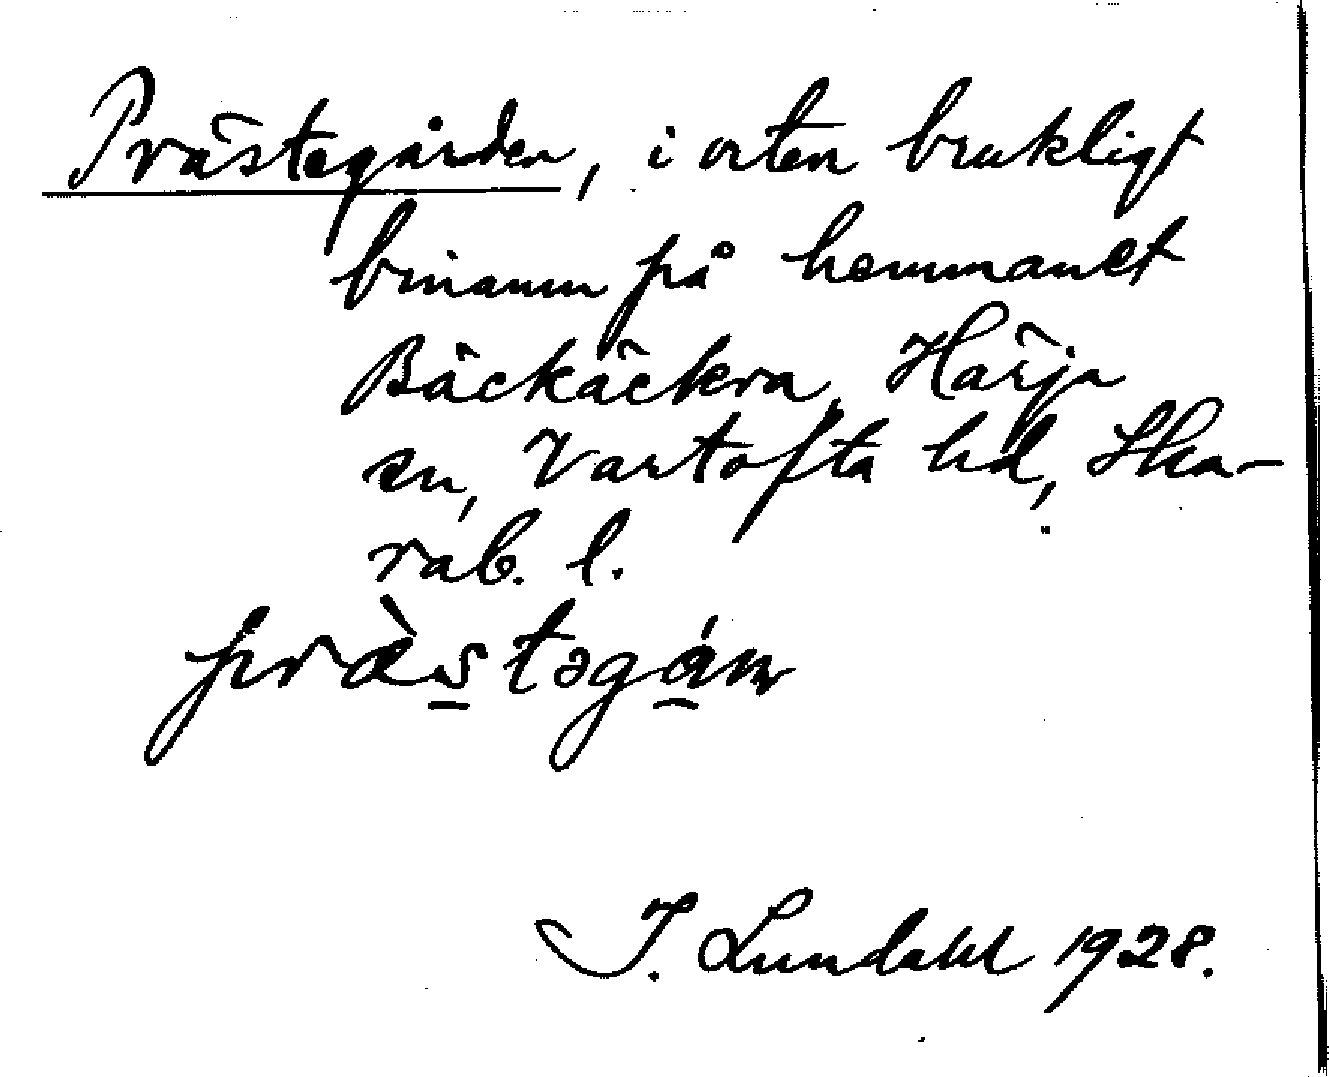 Prästegården, i orten brukligt
binamn på hemmanet
Bäckäckra, Härja
sn, Vartofta hd, Ska-
rab. l.
præ̀stəgán
I. Lundahl 1928.